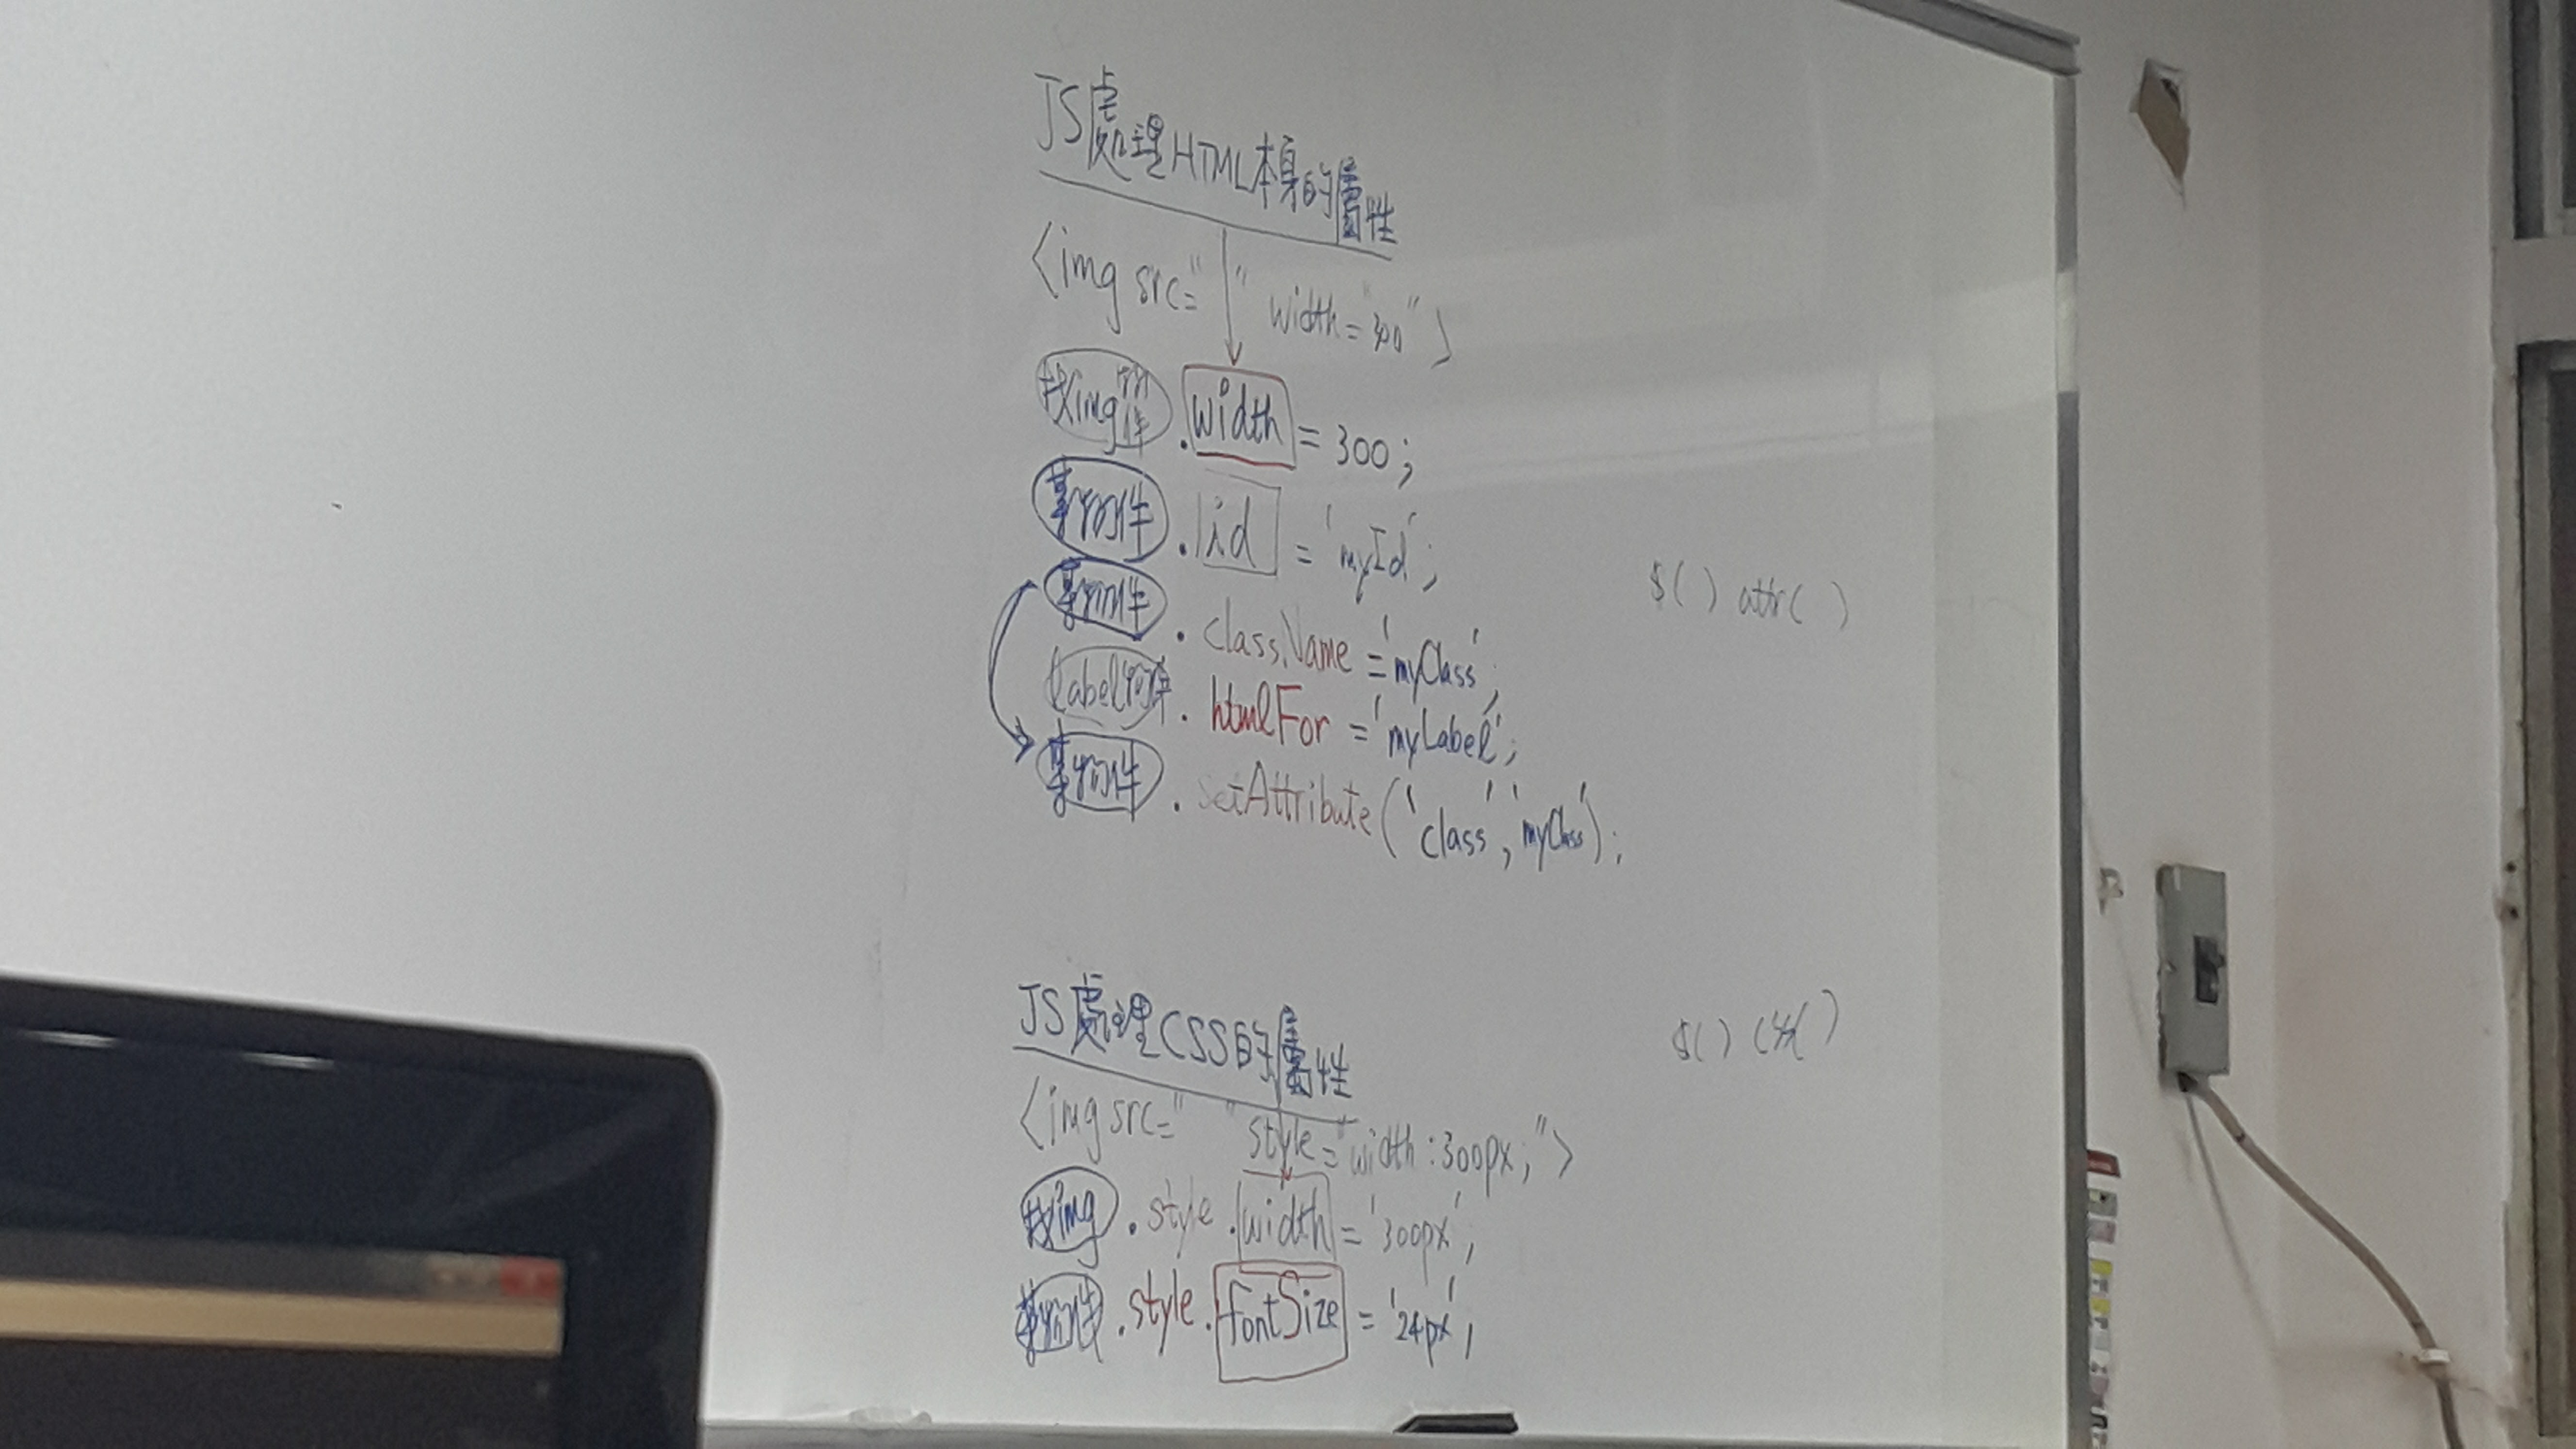 JS處理HTML本身的屬性
<img src=" " width="300">
找img物件.width = 300;
某物件.id = 'myId';
某物件.className = 'myClass';
label物件.htmlFor = 'myLabel';
某物件.setAttribute('class','myClass');
$( ) attr( )
JS處理CSS的屬性
<img src=" " style="width:300px;">
找img.style.width = '300px';
某物件.style.fontSize = '24px';
$( )